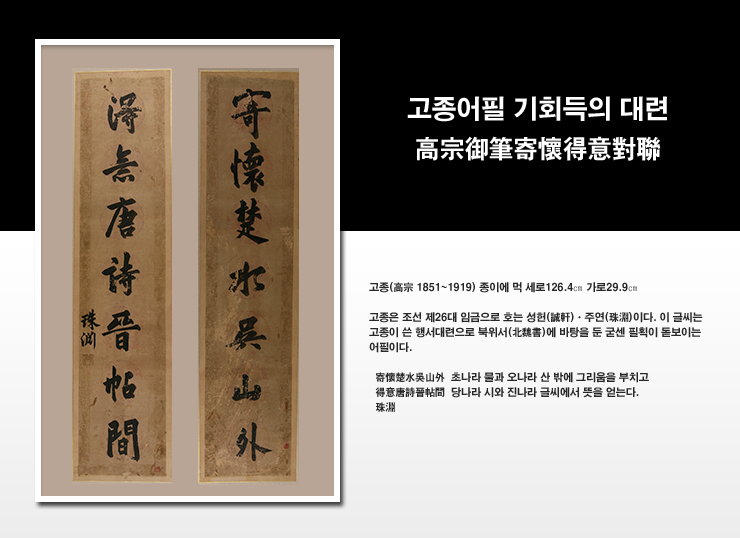 寄懷楚水吳山外
得意唐詩晉帖間
珠淵
고종어필 기회득의 대련
高宗御筆寄懷得意對聯
고종(高宗 1851~1919) 종이에 먹 세로126.4㎝ 가로29.9㎝
고종은 조선 제26대 임금으로 호는 성헌(誠軒)·주연(珠淵)이다. 이 글씨는
고종이 쓴 행서대련으로 북위서(北魏書)에 바탕을 둔 굳센 필획이 돋보이는
어필이다.
寄懷楚水吳山外 초나라 물과 오나라 산 밖에 그리움을 부치고
得意唐詩晉帖間 당나라 시와 진나라 글씨에서 뜻을 얻는다.
珠淵